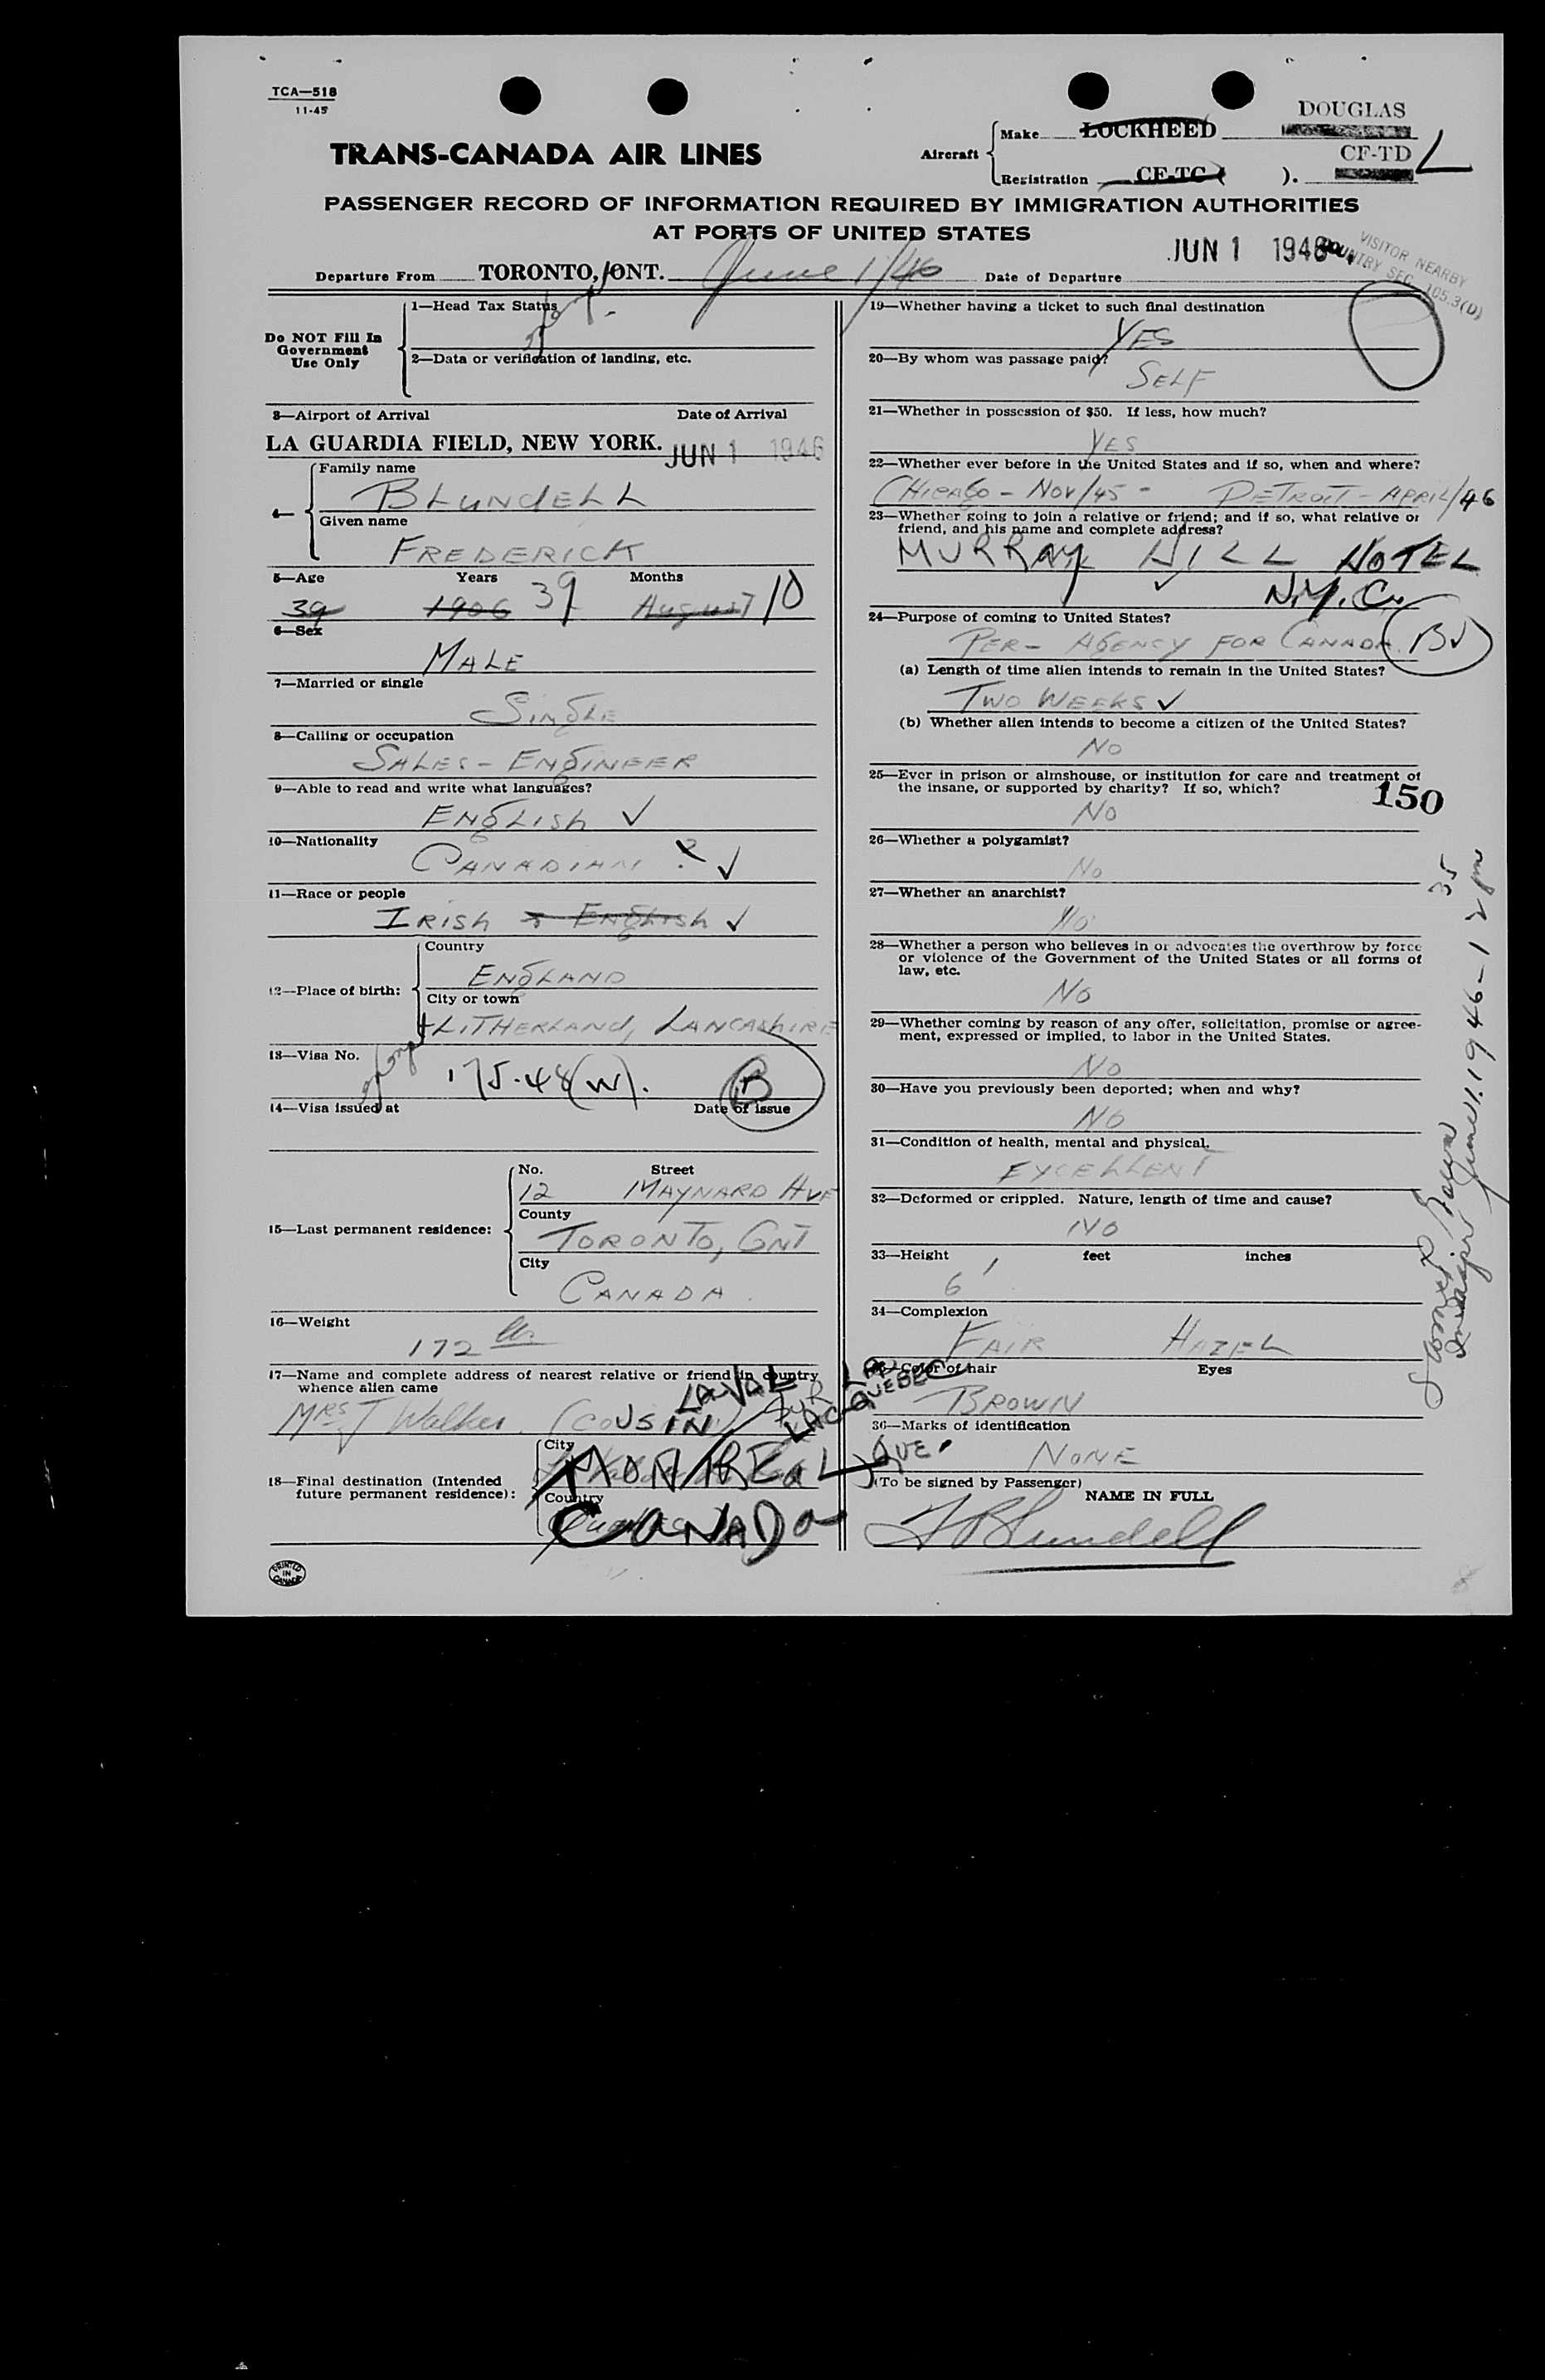 TCA—518
11-45
DOUGLAS
Aircraft
Make LOCKHEED
CF-TD L
Registration CF-TC ( ).
TRANS-CANADA AIR LINES
PASSENGER RECORD OF INFORMATION REQUIRED BY IMMIGRATION AUTHORITIES
AT PORTS OF UNITED STATES
JUN 1 1946
VISITOR NEARBY
COUNTRY SEC. 105.3(D)
Departure From TORONTO, ONT. June 1/46 Date of Departure
Do NOT Fill In
Government
Use Only
1—Head Tax Status
2—Data or verification of landing, etc.
3—Airport of Arrival Date of Arrival
LA GUARDIA FIELD, NEW YORK. JUN 1 1946
4—
Family name
BLUNDELL
Given name
FREDERICK
5—Age Years Months
39 1906 39 August 10
6—Sex
MALE
7—Married or single
SINGLE
8—Calling or occupation
SALES - ENGINEER
9—Able to read and write what languages?
ENGLISH ✓
10—Nationality
CANADIAN ? ✓
11—Race or people
IRISH & ENGLISH ✓
12—Place of birth:
Country
ENGLAND
City or town
LITHERLAND, LANCASHIRE
13—Visa No.
175.48(W). B
14—Visa issued at Date of issue
15—Last permanent residence:
No. Street
12 MAYNARD AVE
County
TORONTO, ONT
City
CANADA.
16—Weight
172 lbs
17—Name and complete address of nearest relative or friend in country
whence alien came
LAVAL
LAC QUEBEC
Mrs J Walker. (COUSIN)
18—Final destination (Intended
future permanent residence):
City
MONTREAL QUE.
Country
CANADA
PRINTED
IN
CANADA
19—Whether having a ticket to such final destination
YES
20—By whom was passage paid?
SELF
21—Whether in possession of $50. If less, how much?
YES
22—Whether ever before in the United States and if so, when and where?
CHICAGO - NOV/45 - DETROIT - APRIL/46
23—Whether going to join a relative or friend; and if so, what relative or
friend, and his name and complete address?
MURRAY HILL HOTEL
N.Y.C.
24—Purpose of coming to United States?
PER- AGENCY FOR CANADA. B✓
(a) Length of time alien intends to remain in the United States?
TWO WEEKS ✓
(b) Whether alien intends to become a citizen of the United States?
NO
25—Ever in prison or almshouse, or institution for care and treatment of
the insane, or supported by charity? If so, which?
150
NO
26—Whether a polygamist?
No
27—Whether an anarchist?
No
28—Whether a person who believes in or advocates the overthrow by force
or violence of the Government of the United States or all forms of
law, etc.
NO
29—Whether coming by reason of any offer, solicitation, promise or agree-
ment, expressed or implied, to labor in the United States.
No
30—Have you previously been deported; when and why?
NO
31—Condition of health, mental and physical.
EXCELLENT
32—Deformed or crippled. Nature, length of time and cause?
NO
33—Height feet inches
6'
34—Complexion
FAIR HAZEL
35—Color of hair Eyes
BROWN
36—Marks of identification
NONE
(To be signed by Passenger)
NAME IN FULL
F Blundell
June 1.1946-1 35
2 pm
8